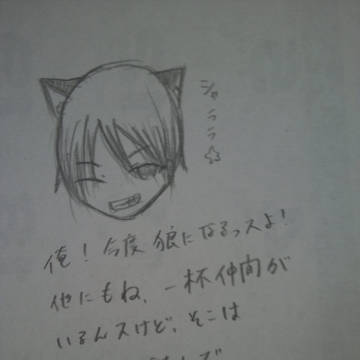 シャララ☆
俺！今度狼になるっスよ！
他にもね、一杯仲間が
いるんスけど、そこは